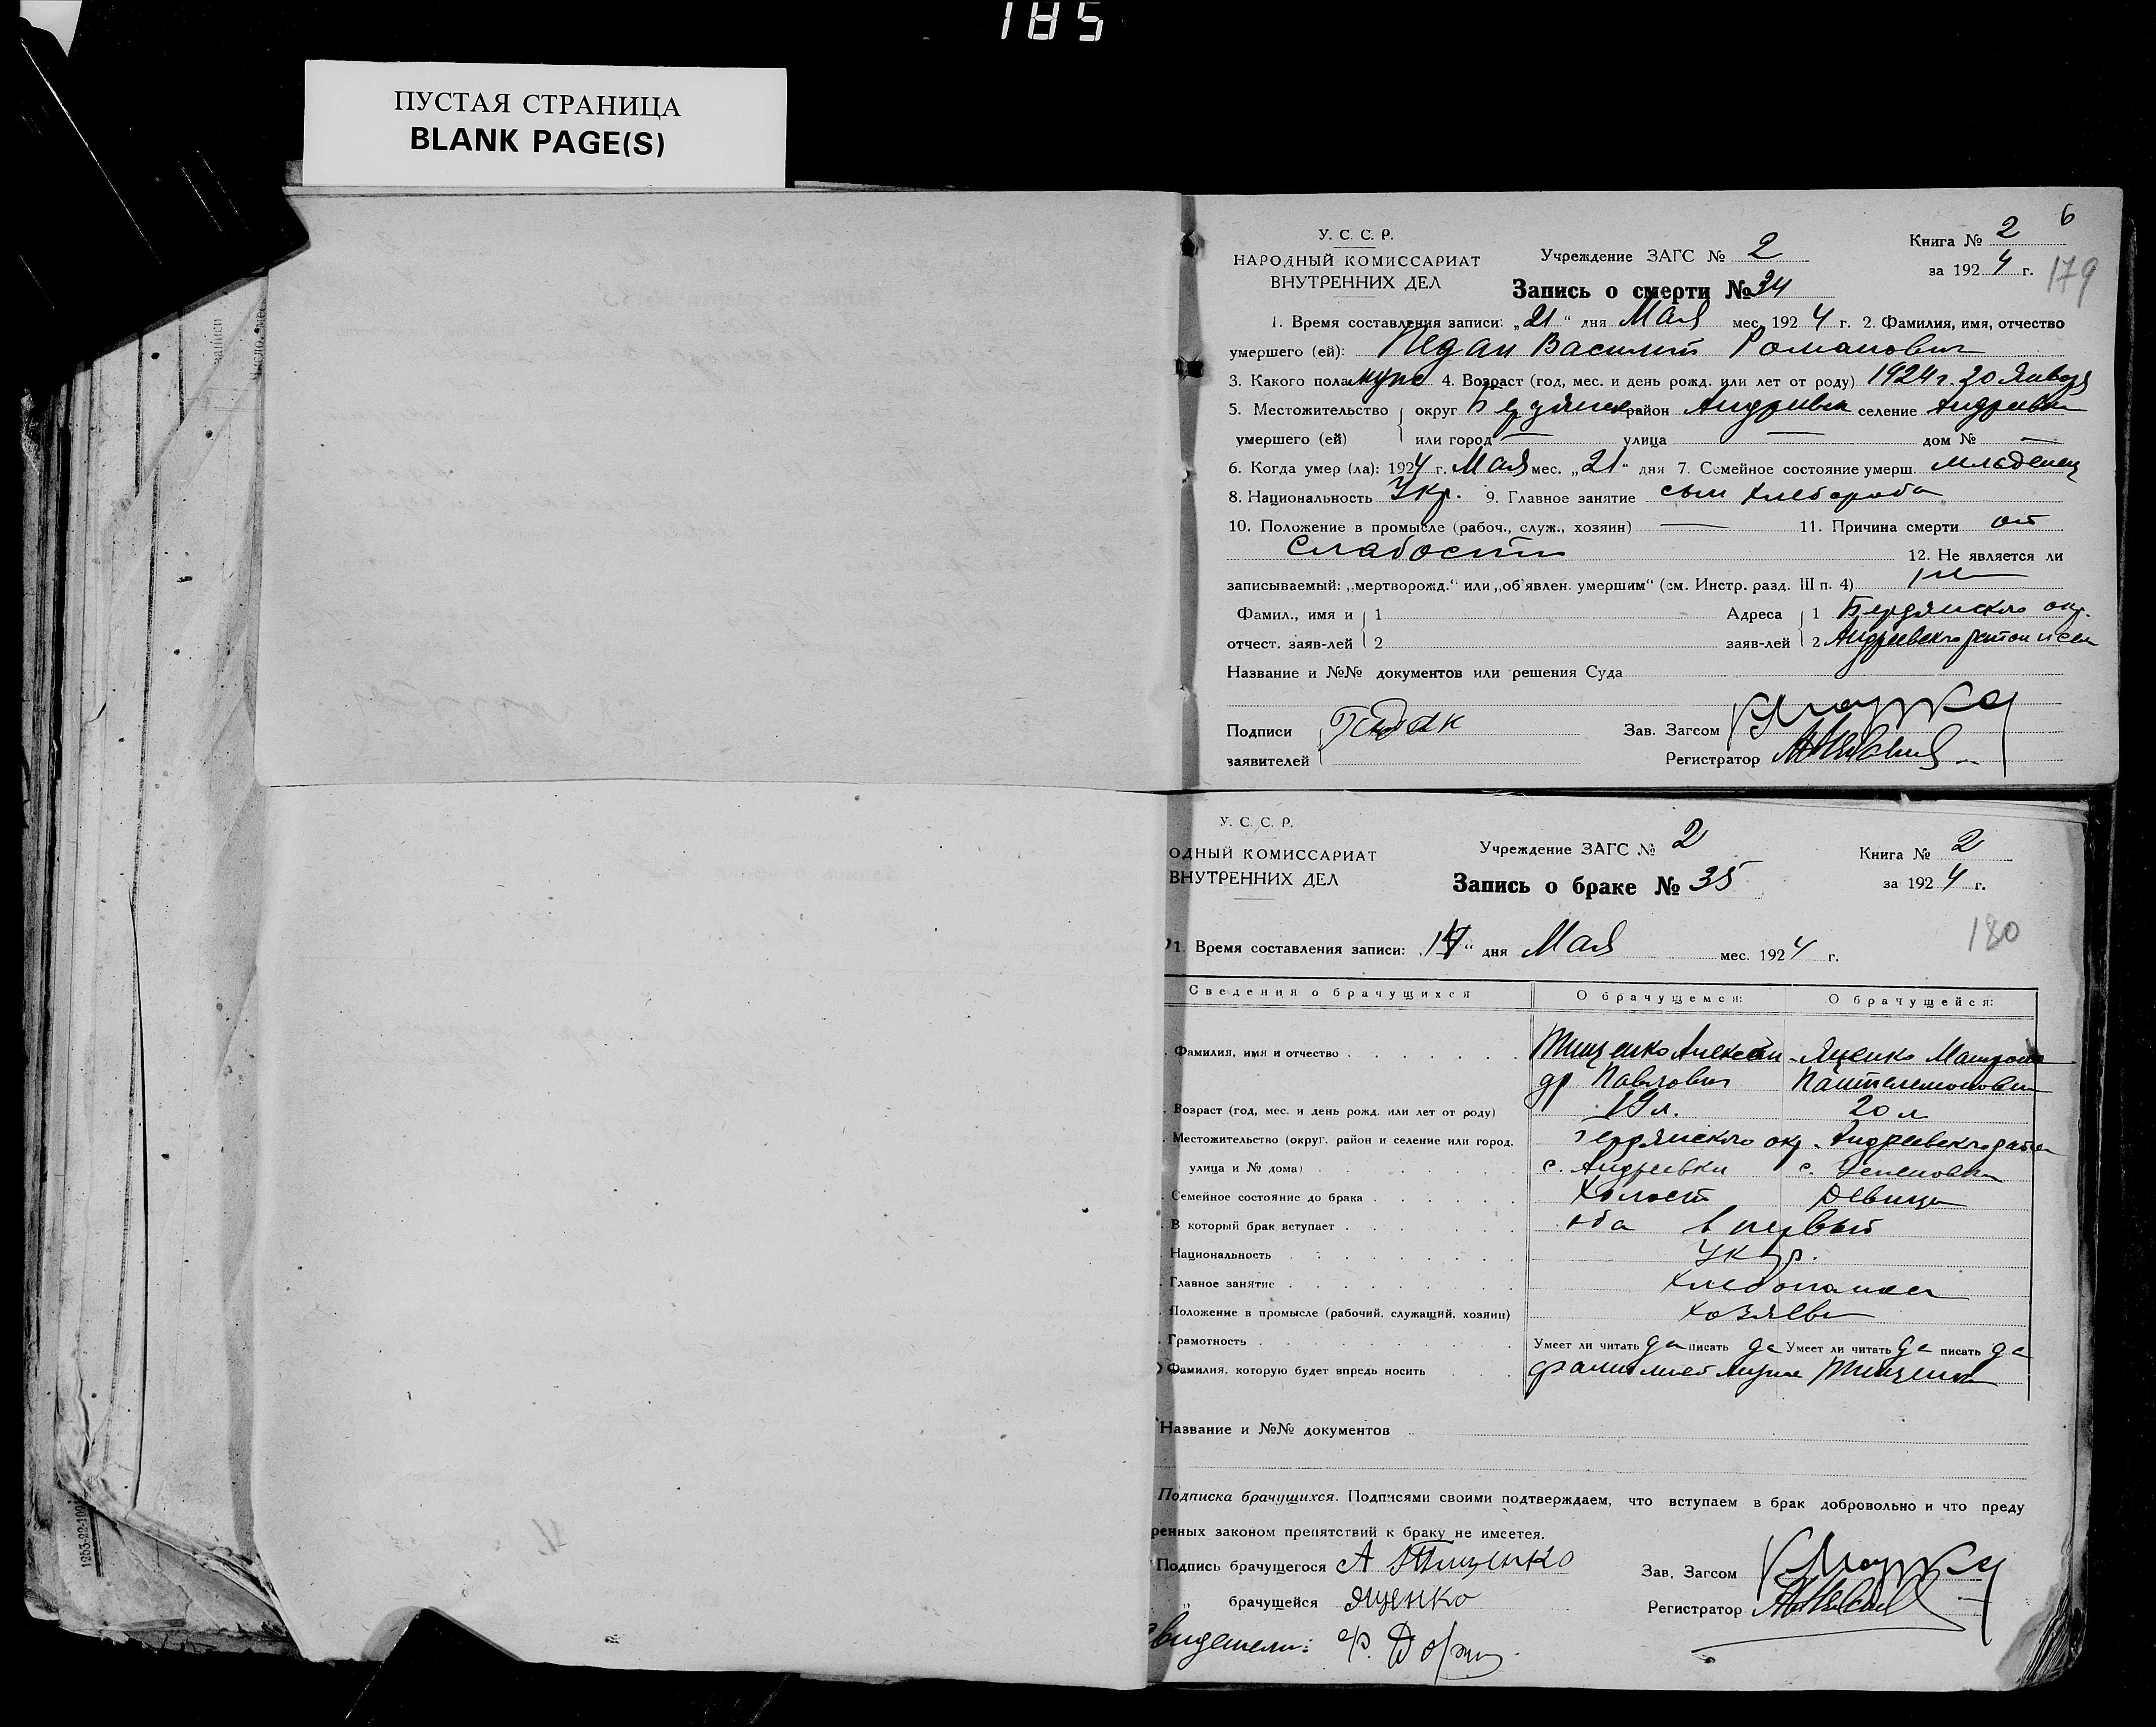 185
ПУСТАЯ СТРАНИЦА
BLANK PAGE(S)
6
У. С. С. Р.
НАРОДНЫЙ КОМИССАРИАТ
ВНУТРЕННИХ ДЕЛ
Учреждение ЗАГС № 2
Книга № 2
за 1924 г.
179
Запись о смерти № 34
1. Время составления записи: „21“ дня Мая мес. 1924 г. 2. Фамилия, имя, отчество
умершего (ей): Педан Василий Романович
3. Какого пола муже 4. Возраст (год, мес. и день рожд. или лет от роду) 1924 г. 20 Января
5. Местожительство округ Бердянск район Андриевк селение Андреевки
умершего (ей) или город — улица — дом № —
6. Когда умер (ла): 1924 г. Мая мес. „21“ дня 7. Семейное состояние умерш. младенец
8. Национальность Укр. 9. Главное занятие сын хлебороба
10. Положение в промысле (рабоч., служ., хозяин) — 11. Причина смерти от
слабости 12. Не является ли
записываемый: „мертворожд.“ или „об'явлен. умершим“ (см. Инстр. разд. III п. 4)
Фамил., имя и 1 Адреса 1 Бердянского окр.
отчест. заяв-лей 2 заяв-лей 2 Андреевского район
Название и №№ документов или решения Суда
Подписи Педак Зав. Загсом
заявителей Регистратор
У. С. С. Р.
ОДНЫЙ КОМИССАРИАТ
ВНУТРЕННИХ ДЕЛ
Учреждение ЗАГС № 2
Книга № 2
за 1924 г.
Запись о браке № 35
180
1. Время составления записи: „14“ дня Мая мес. 1924 г.
Сведения о брачущихся О брачущемся: О брачущейся:
Фамилия, имя и отчество Тищенко Алексан Яценко Матрона
др Павлович Пантелемоновна
Возраст (год, мес. и день рожд. или лет от роду) 19 л. 20 л
Местожительство (округ, район и селение или город, Бердянского окр. Андреевского район
улица и № дома) с. Андреевки с.
Семейное состояние до брака Холост Девица
В который брак вступает оба в первый
Национальность Укр.
Главное занятие
Положение в промысле (рабочий, служащий, хозяин) хозяева
Грамотность Умеет ли читать да писать да Умеет ли читать да писать да
Фамилия, которую будет впредь носить фамилией мужа Тищенко
Название и №№ документов
Подписка брачущихся. Подписями своими подтверждаем, что вступаем в брак добровольно и что преду
ренных законом препятствий к браку не имеется.
Подпись брачущегося А Тищенко Зав. Загсом
„ брачущейся Яценко Регистратор
видетели: Ф.
1253-22-109